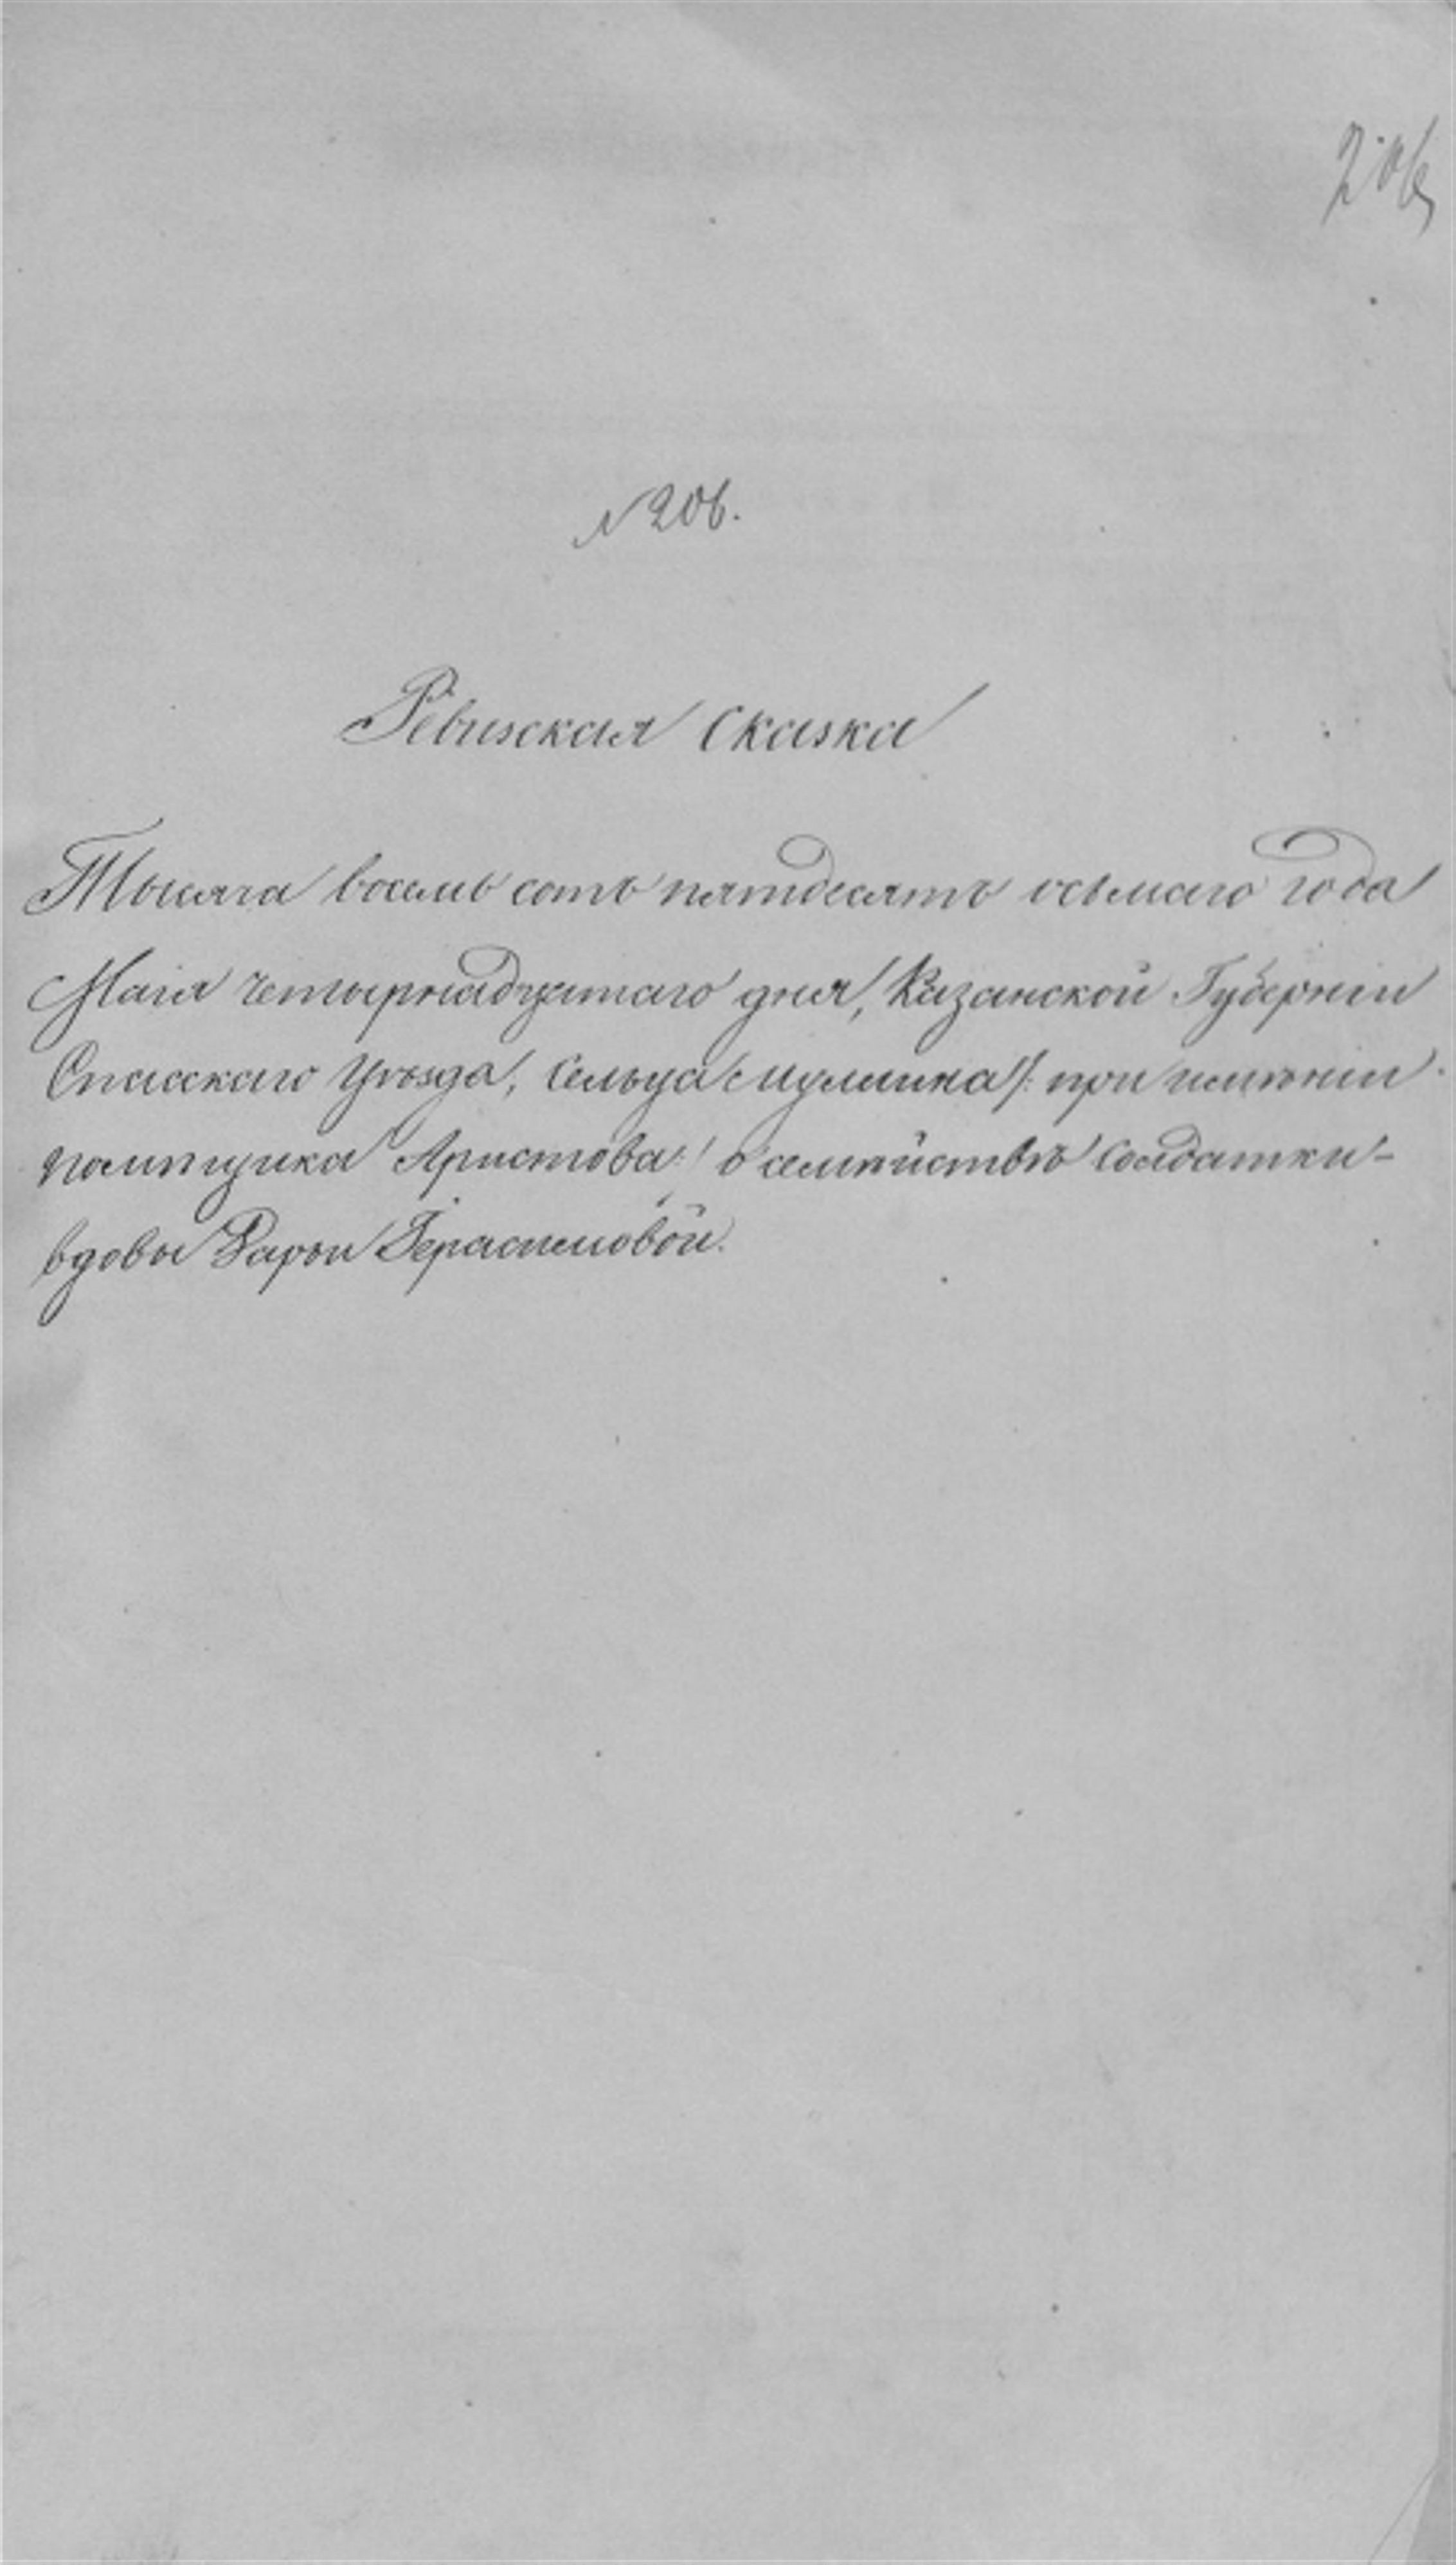 206
№ 206.
Ревизская Сказка
Тысяча восемь сотъ пятдесятъ осьмаго года
Маія четырнадцатаго дня, Казанской Губерніи
Спасскаго Уѣзда, Сельца /: при имѣніи
помѣщика Аристова :/ о семѣйствѣ Солдатки-
вдовы Дарьи Герасимовой.